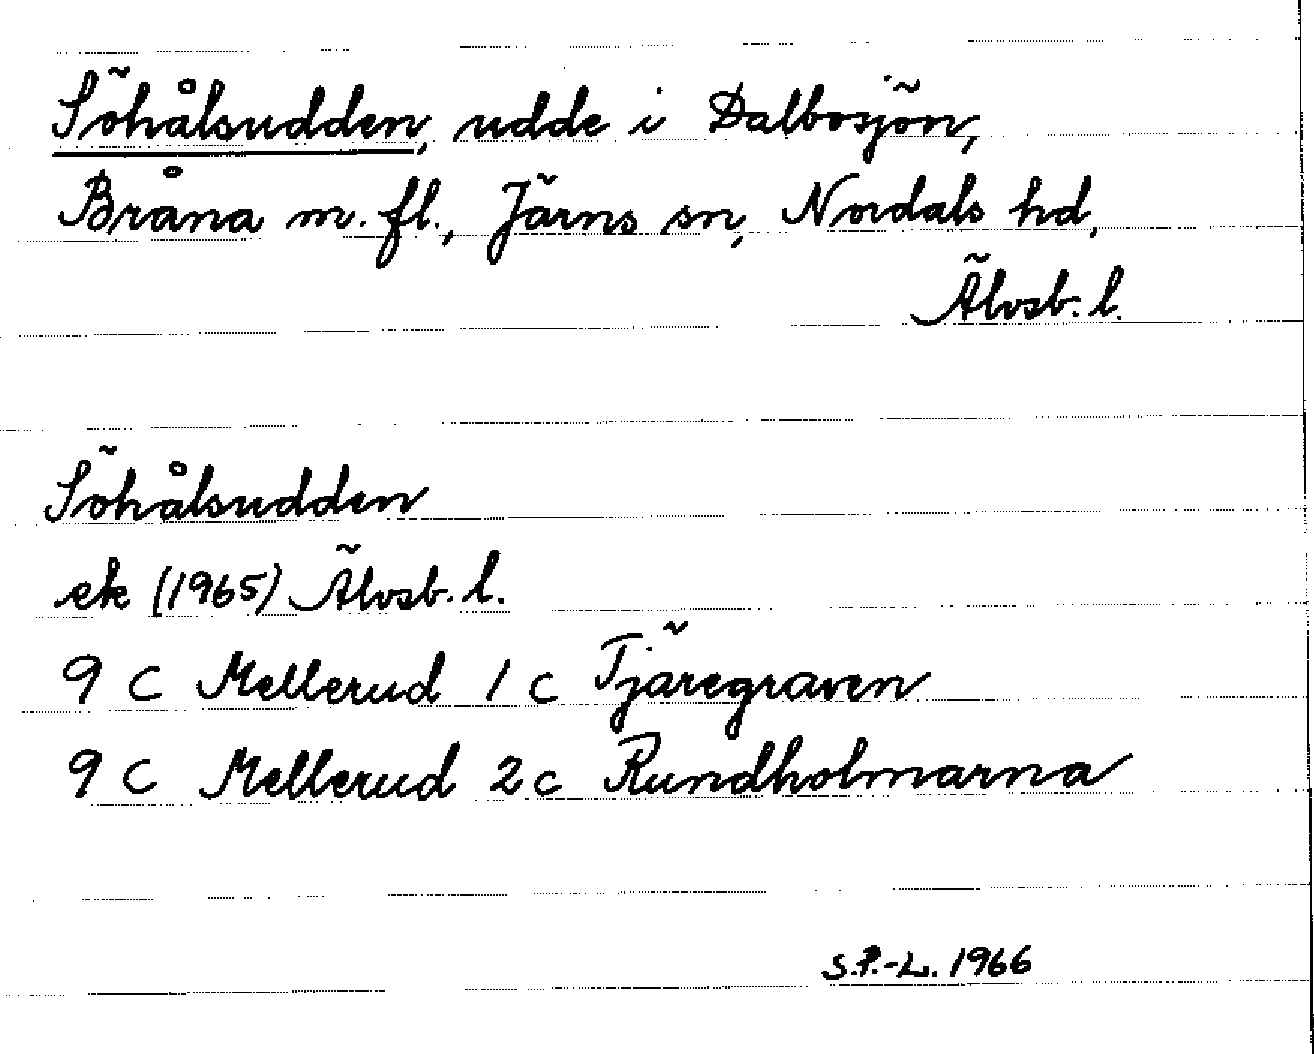 Söhålsudden, udde i Dalbosjön,
Bråna m. fl., Järns sn, Nordals hd,
Älvsb. l.
Söhålsudden
ek (1965) Älvsb. l.
9 C Mellerud 1 c Tjäregraven
9 C Mellerud 2 c Rundholmarna
S.P.-L. 1966